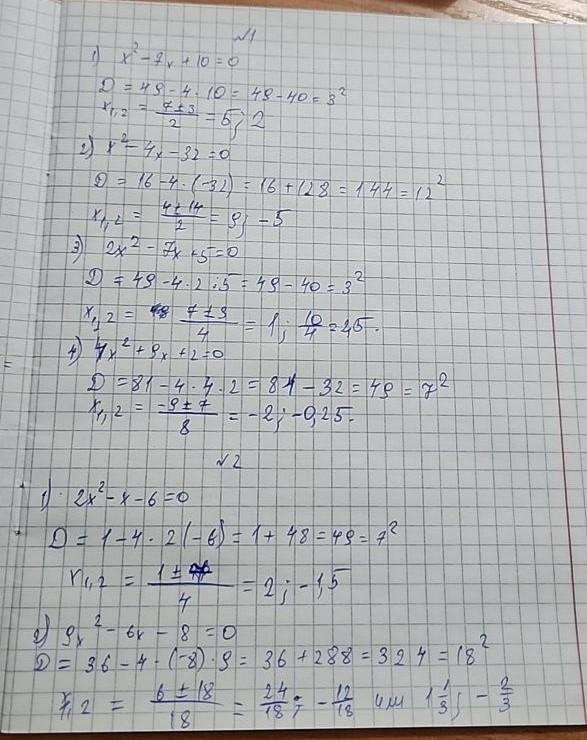 №1
1) x² - 7x + 10 = 0
D = 49 - 4 · 10 = 49 - 40 = 3²
x₁,₂ = (7 ± 3)/2 = 5; 2
2) x² - 4x - 32 = 0
D = 16 - 4 · (-32) = 16 + 128 = 144 = 12²
x₁,₂ = (4 ± 14)/2 = 9; -5
3) 2x² - 7x + 5 = 0
D = 49 - 4 · 2 · 5 = 49 - 40 = 3²
x₁,₂ = (7 ± 3)/4 = 1; 10/4 = 2,5.
4) 4x² + 9x + 2 = 0
D = 81 - 4 · 4 · 2 = 81 - 32 = 49 = 7²
x₁,₂ = (-9 ± 7)/8 = -2; -0,25.
№2
1) 2x² - x - 6 = 0
D = 1 - 4 · 2(-6) = 1 + 48 = 49 = 7²
x₁,₂ = (1 ± 7)/4 = 2; -1,5
2) 9x² - 6x - 8 = 0
D = 36 - 4 · (-8) · 9 = 36 + 288 = 324 = 18²
x₁,₂ = (6 ± 18)/18 = 24/18; -12/18 или 1 1/3; -2/3